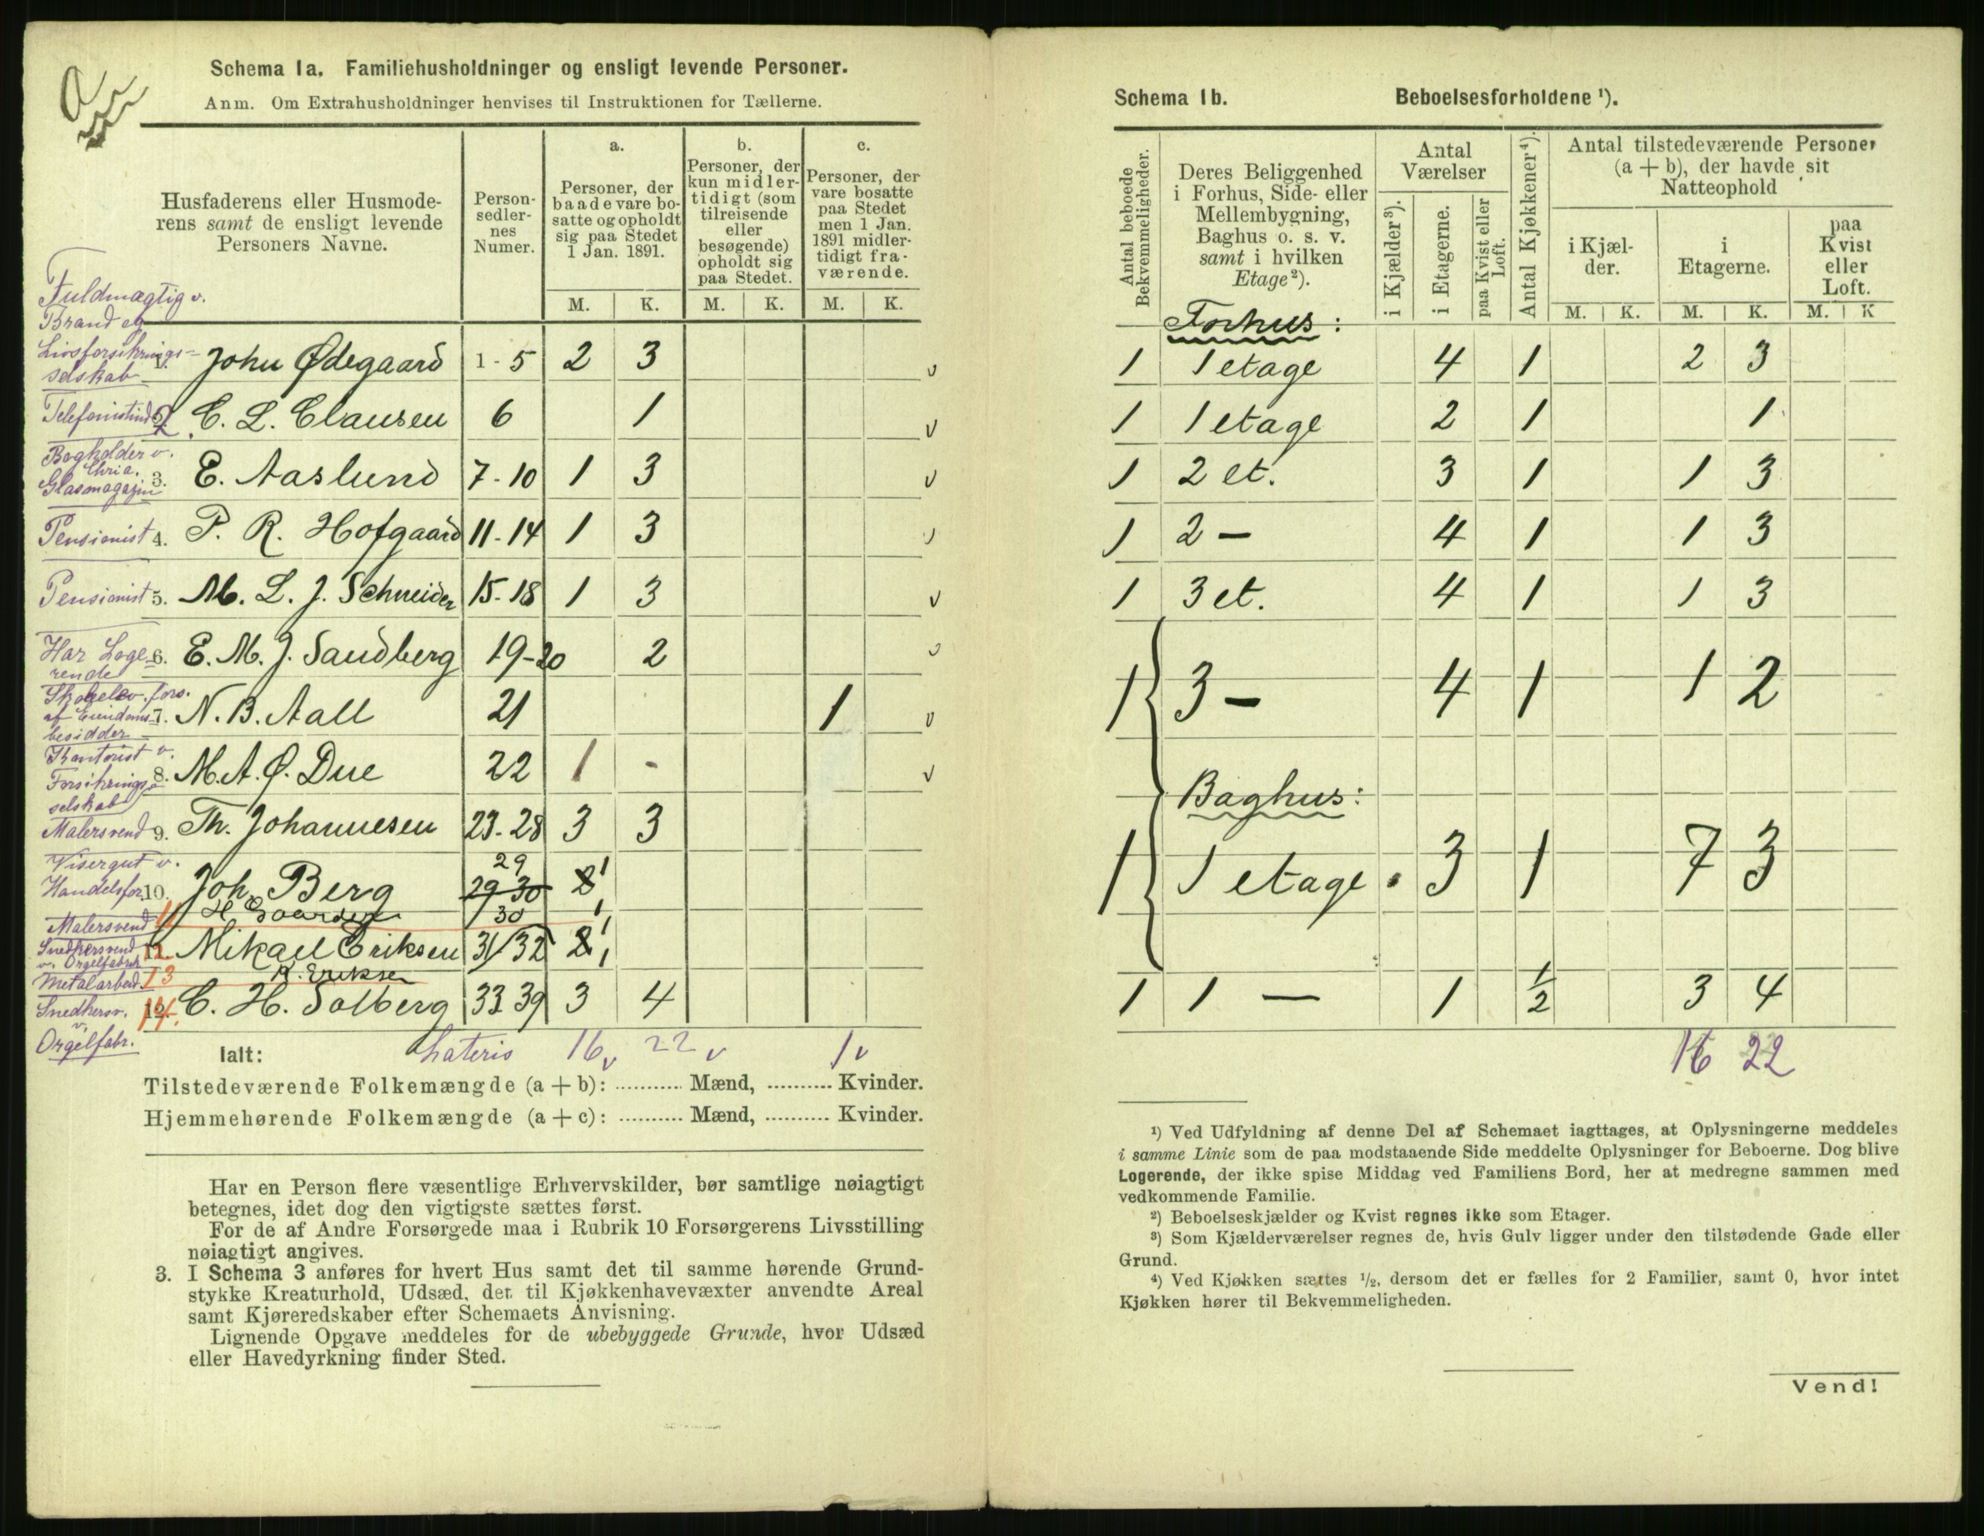 Schema 1a. Familiehusholdninger og ensligt levende Personer.
Anm. Om Extrahusholdninger henvises til Instruktionen for Tællerne.
Husfaderens eller Husmode-
rens samt de ensligt levende
Personers Navne.
Person-
sedler-
nes
Numer.
a.
Personer, der
baade vare bo-
satte og opholdt
sig paa Stedet
1 Jan. 1891.
b.
Personer, der
kun midler-
tidigt (som
tilreisende
eller
besøgende)
opholdt sig
paa Stedet.
c.
Personer, der
vare bosatte
paa Stedet
men 1 Jan.
1891 midler-
tidigt fra-
værende.
M. K. M. K. M. K.
Fuldmægtig v.
Brand og
Livsforsikrings-
selskab
1. John Ødegaard 1-5 2 3 v
Telefonistinde
2 C. L. Clausen 6 1 v
Bogholder v.
Chria.
Glasmagazin
3. E. Aaslund 7-10 1 3 v
Pensionist 4. P. R. Hofgaard 11-14 1 3 v
Pensionist 5. M. L. J. Schneider 15-18 1 3 v
Har Loge-
rende
6. E. M. J. Sandberg 19-20 2 v
Skogelev, fors.
af Eiendoms-
besidder
7. N. B. Aall 21 1 v
Kontorist v.
Forsikrings-
selskab
8. M. A. Ø. Due 22 1 - v
Malersvend 9. Th. Johannesen 23-28 3 3
Visergut v.
Handelsfor.
10. Joh. Berg 29 29-30 2 1
Malersvend 11 H. Gaarder 30 1
Snedkersvend
v. Orgelfabrik
12. Mikael Eriksen 31/32 2 1
Metalarbeid. 13 K. Eriksen 1
Snedkersv.
v.
Orgelfabr.
14. C. H. Solberg 33 39 3 4
Ialt: Lateris 16 v 22 v 1 v
Tilstedeværende Folkemængde (a + b): ........... Mænd, ........... Kvinder.
Hjemmehørende Folkemængde (a + c): ........... Mænd, ........... Kvinder.
Har en Person flere væsentlige Erhvervskilder, bør samtlige nøiagtigt
betegnes, idet dog den vigtigste sættes først.
For de af Andre Forsørgede maa i Rubrik 10 Forsørgerens Livsstilling
nøiagtigt angives.
3. I Schema 3 anføres for hvert Hus samt det til samme hørende Grund-
stykke Kreaturhold, Udsæd, det til Kjøkkenhavevæxter anvendte Areal
samt Kjøreredskaber efter Schemaets Anvisning.
Lignende Opgave meddeles for de ubebyggede Grunde, hvor Udsæd
eller Havedyrkning finder Sted.
Schema 1b. Beboelsesforholdene ¹).
Antal beboede
Bekvemmeligheder.
Deres Beliggenhed
i Forhus, Side- eller
Mellembygning,
Baghus o. s. v.
samt i hvilken
Etage ²).
Antal
Værelser
i Kjælder ³).
i Etagerne.
paa Kvist eller
Loft.
Antal Kjøkkener ⁴).
Antal tilstedeværende Personer
(a + b), der havde sit
Natteophold
i Kjæl-
der.
i
Etagerne.
paa
Kvist
eller
Loft.
M. K. M. K. M. K
Forhus:
1 1 etage 4 1 2 3
1 1 etage 2 1 1
1 2 et. 3 1 1 3
1 2 — 4 1 1 3
1 3 et. 4 1 1 3
1 3 — 4 1 1 2
Baghus:
1 1 etage. 3 1 7 3
1 1 — 1 1/2 3 4
16 22
¹) Ved Udfyldning af denne Del af Schemaet iagttages, at Oplysningerne meddeles
i samme Linie som de paa modstaaende Side meddelte Oplysninger for Beboerne. Dog blive
Logerende, der ikke spise Middag ved Familiens Bord, her at medregne sammen med
vedkommende Familie.
²) Beboelseskjælder og Kvist regnes ikke som Etager.
³) Som Kjælderværelser regnes de, hvis Gulv ligger under den tilstødende Gade eller
Grund.
⁴) Ved Kjøkken sættes ½, dersom det er fælles for 2 Familier, samt 0, hvor intet
Kjøkken hører til Bekvemmeligheden.
Vend!